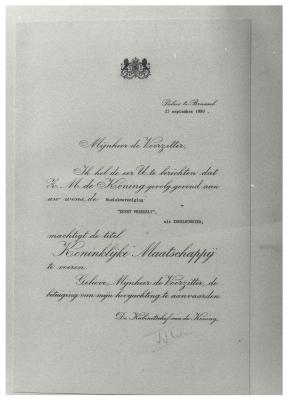 Paleis te Brussel
23 september 1980.
Mijnheer de Voorzitter,
Ik heb de eer U te berichten dat
Z. M. de Koning gevolg gevend aan
uw wens, de Muziekvereniging
"KUNST VEREDELT",
uit INGELMUNSTER,
machtigt de titel
"Koninklijke Maatschappij"
te voeren.
Gelieve, Mijnheer de Voorzitter, de
betuiging van mijn hoogachting te aanvaarden.
De Kabinetschef van de Koning,